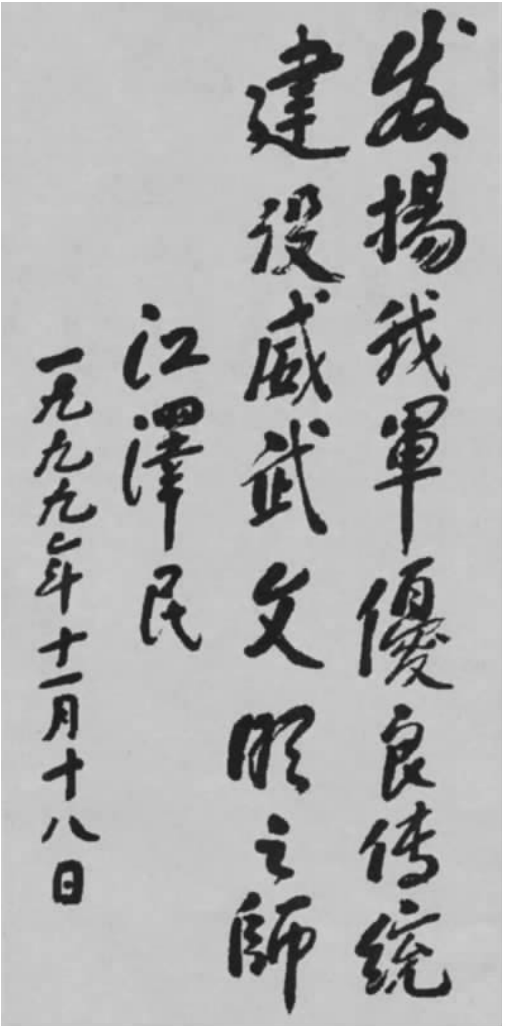 发揚我軍優良传統
建設威武文明之師
江澤民
一九九九年十一月十八日